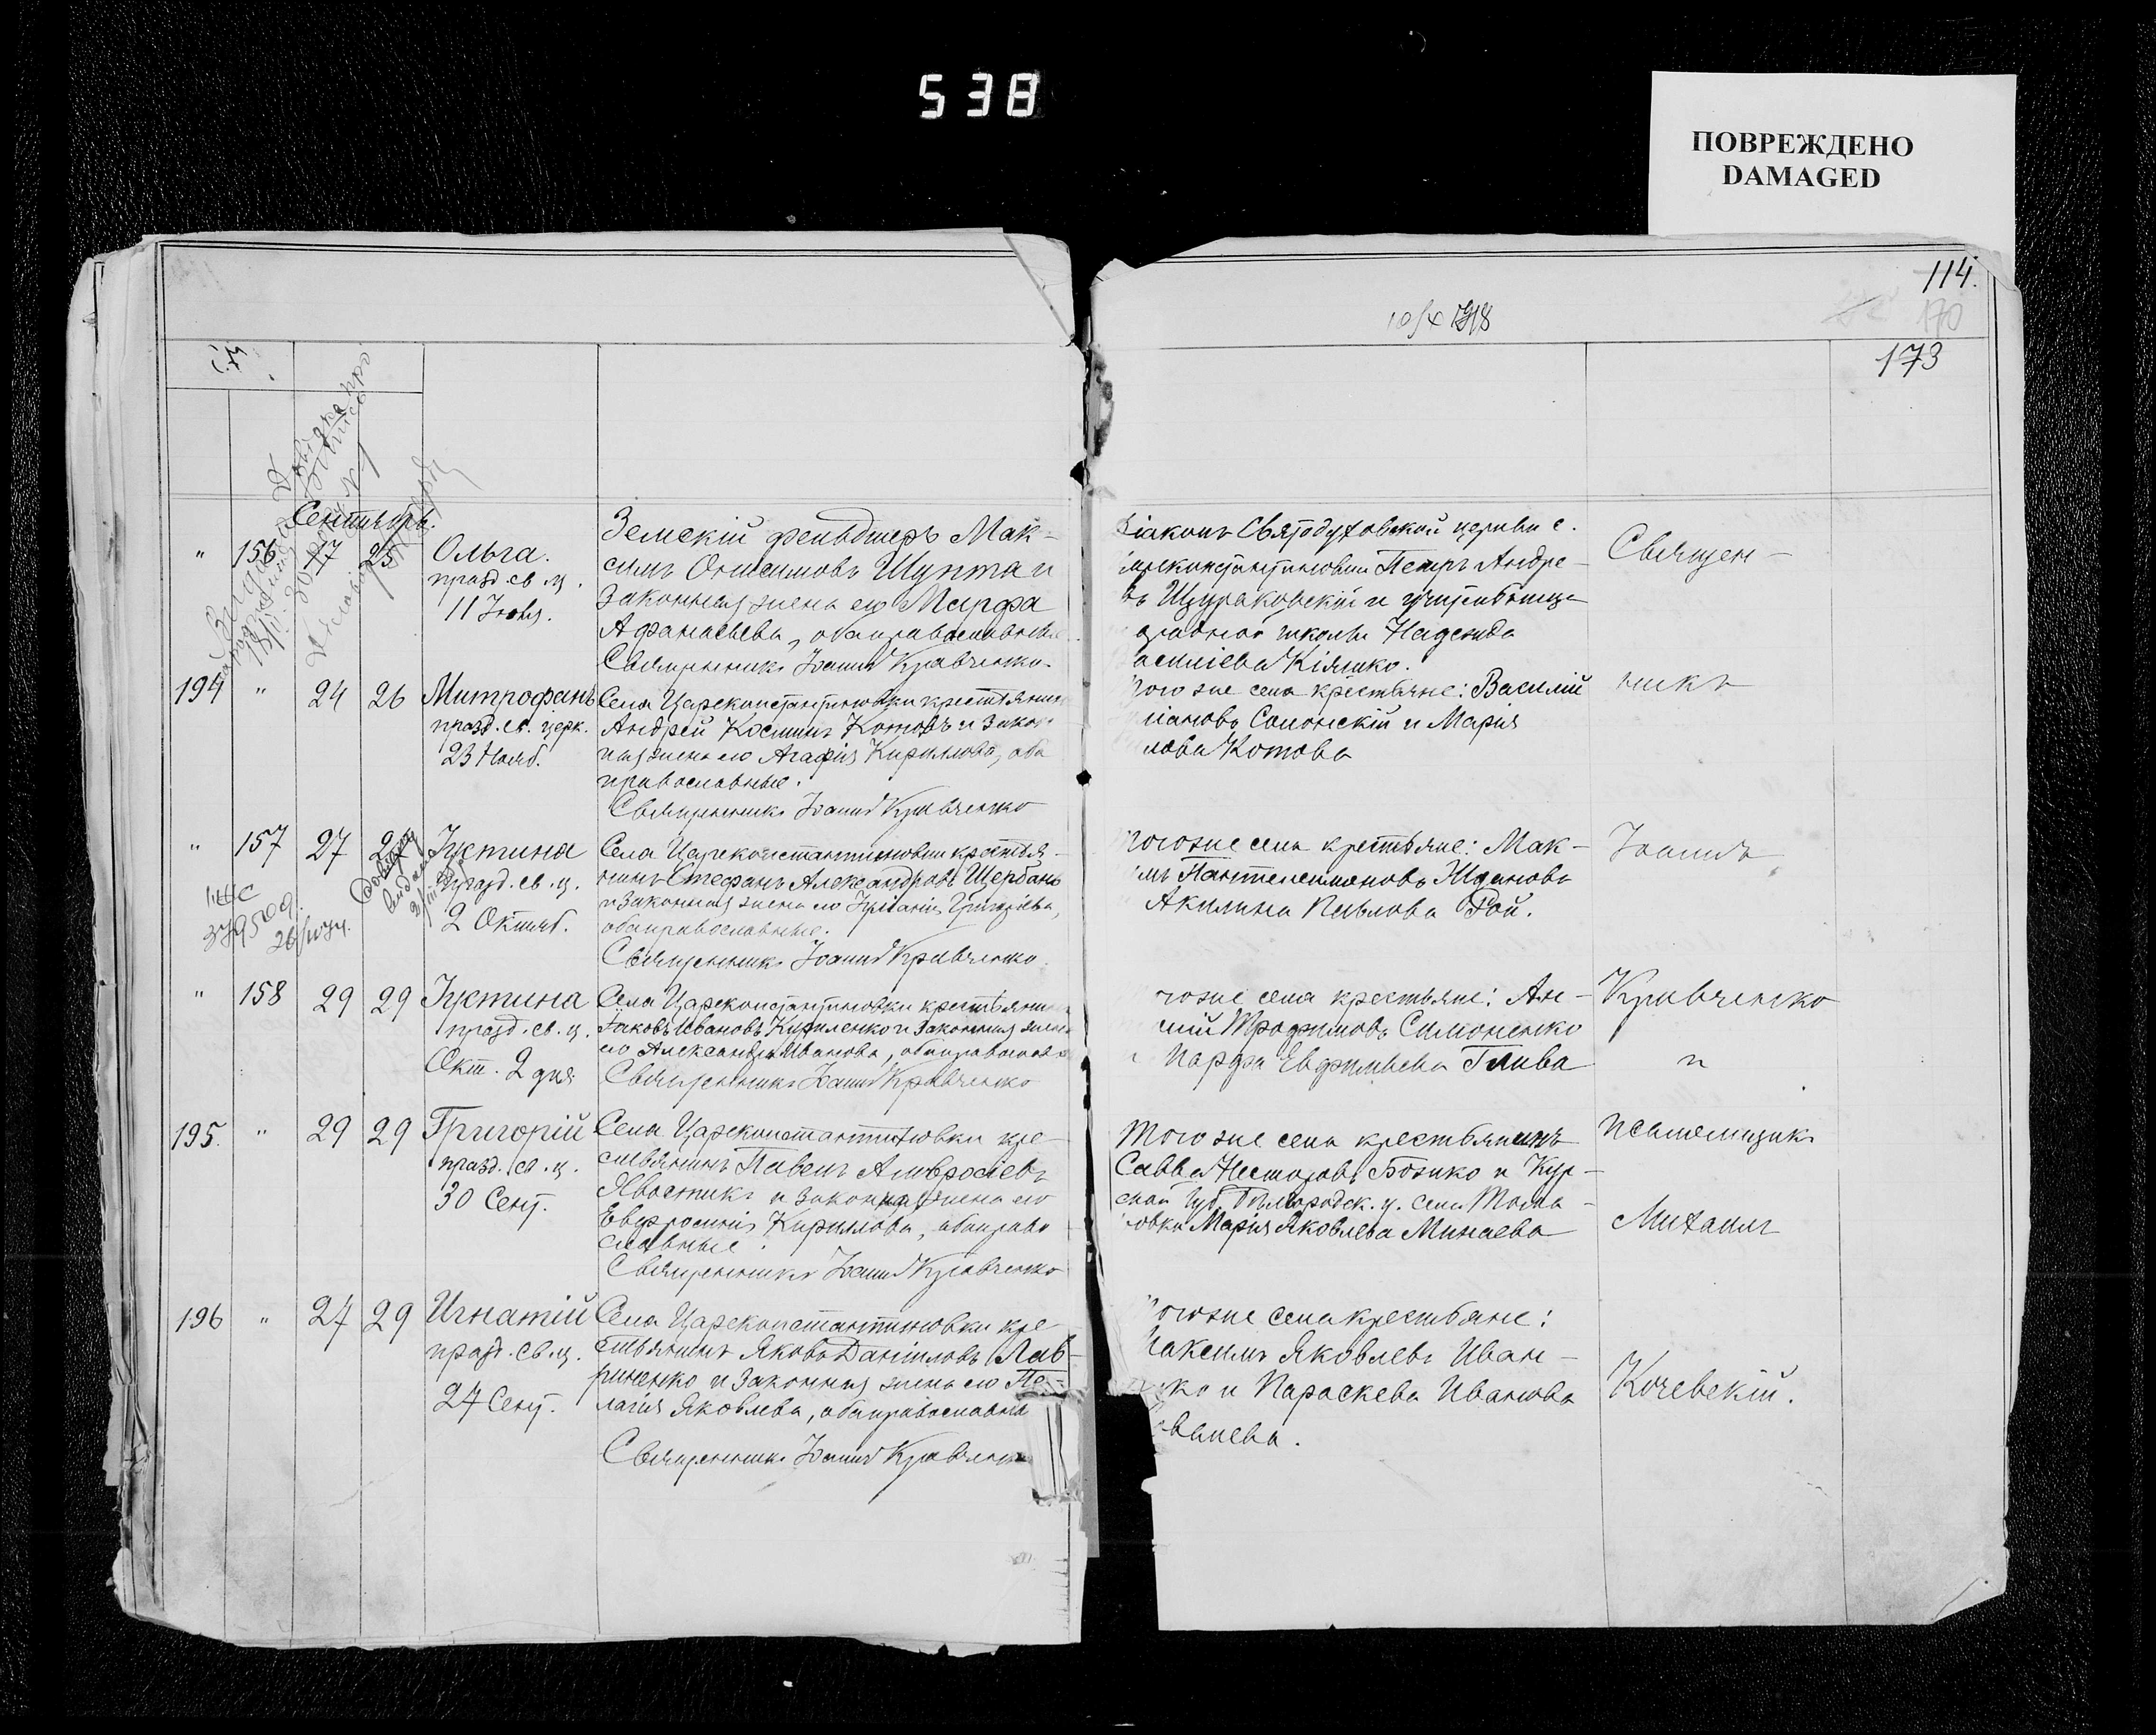 538
ПОВРЕЖДЕНО
DAMAGED
114.
170
173
Сентябрь.
" 156 17 25 Ольга.
празд. св. ц.
11 Іюля.
Земскій фельдшеръ Мак-
симъ Онисимовъ Шупта и
законная жена его Марфа
Афанасьева, оба православные
Священникъ Іоаннъ Кравченко
діаконъ Святодуховской церкви с.
Петръ Андре-
въ Щураковскій и учительница
школы Надежда
Кіяшко.
194 " 24 26 Митрофанъ
празд. св. церк.
23 Нояб.
Села Цареконстантиновки крестьянинъ
Андрей Косминъ Котовъ и закон
ная жена его Агафія Кириллова, оба
православные.
Священникъ Іоаннъ Кравченко
того же села крестьяне: Василій
Солонскій и Марія
лова Котова
" 157 27 27 Іустина
празд. св. ц.
2 Октяб.
Села Цареконстантиновки крестья-
нинъ Стефанъ Александровъ Щербань
и законная жена его Григорьева,
оба православные.
Священникъ Іоаннъ Кравченко
того же села крестьяне: Мак-
имъ Пантелеимоновъ Ждановъ
Акилина Павлова Рой.
" 158 29 29 Іустина
празд. св. ц.
Окт. 2 дня
Села Цареконстантиновки крестьянин
Іаковъ Ивановъ Кириленко и законная жена
его Александра Иванова, оба православн
Священникъ Іоаннъ Кравченко
того же села крестьяне: Ан-
ній Трофимовъ Симоненко
и Марфа Евфимьева Глива
195. " 29 29 Григорій
празд. св. ц.
30 Сент.
Села Цареконстантиновки кре-
стьянинъ Павелъ Амвросіевъ
Хвостикъ и законная жена его
Евфросинія Кириллова, оба право
славные.
Священникъ Іоаннъ Кравченко
Того же села крестьянинъ
Савва Несторовъ Божко и Кур-
ской губ. Бѣлгородск. у. села
Марія Яковлева Минаева
196 " 27 29 Игнатій
празд. св. ц.
27 Сент.
Села Цареконстантиновки кре
стьянинъ Яковъ Даніиловъ Лав-
риненко и законная жена его Пе-
лагія Яковлева, оба православны
Священникъ Іоаннъ Кравченко
того же села крестьяне:
Максимъ Яковлевъ Иван-
ко и Параскева Иванова
Священ-
никъ
Іоаннъ
Кравченко
и
псаломщикъ
Михаилъ
Кочевскій.